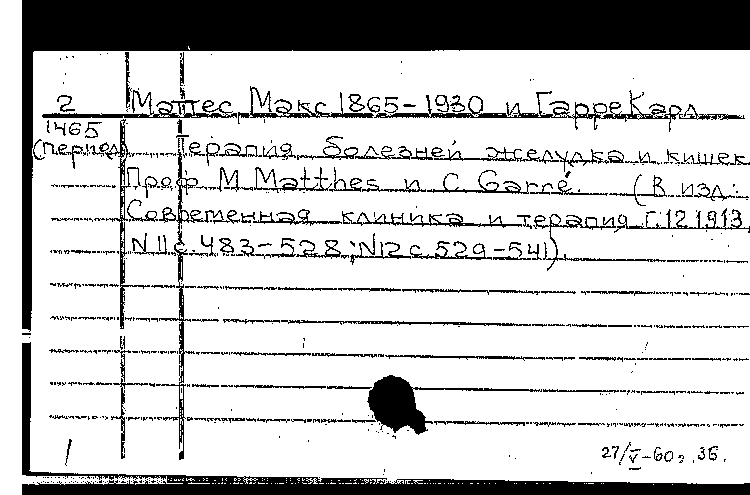 2 Маттес Макс 1865-1930 и Гарре Карл
1465
(период) Терапия болезней желудка и кишек
Проф. M Matthes и C. Garré. (В изд:
Современная клиника и терапия г.12 1913,
N 11 с. 483-528; N12 с. 529-541).
27/V-60г. 36.